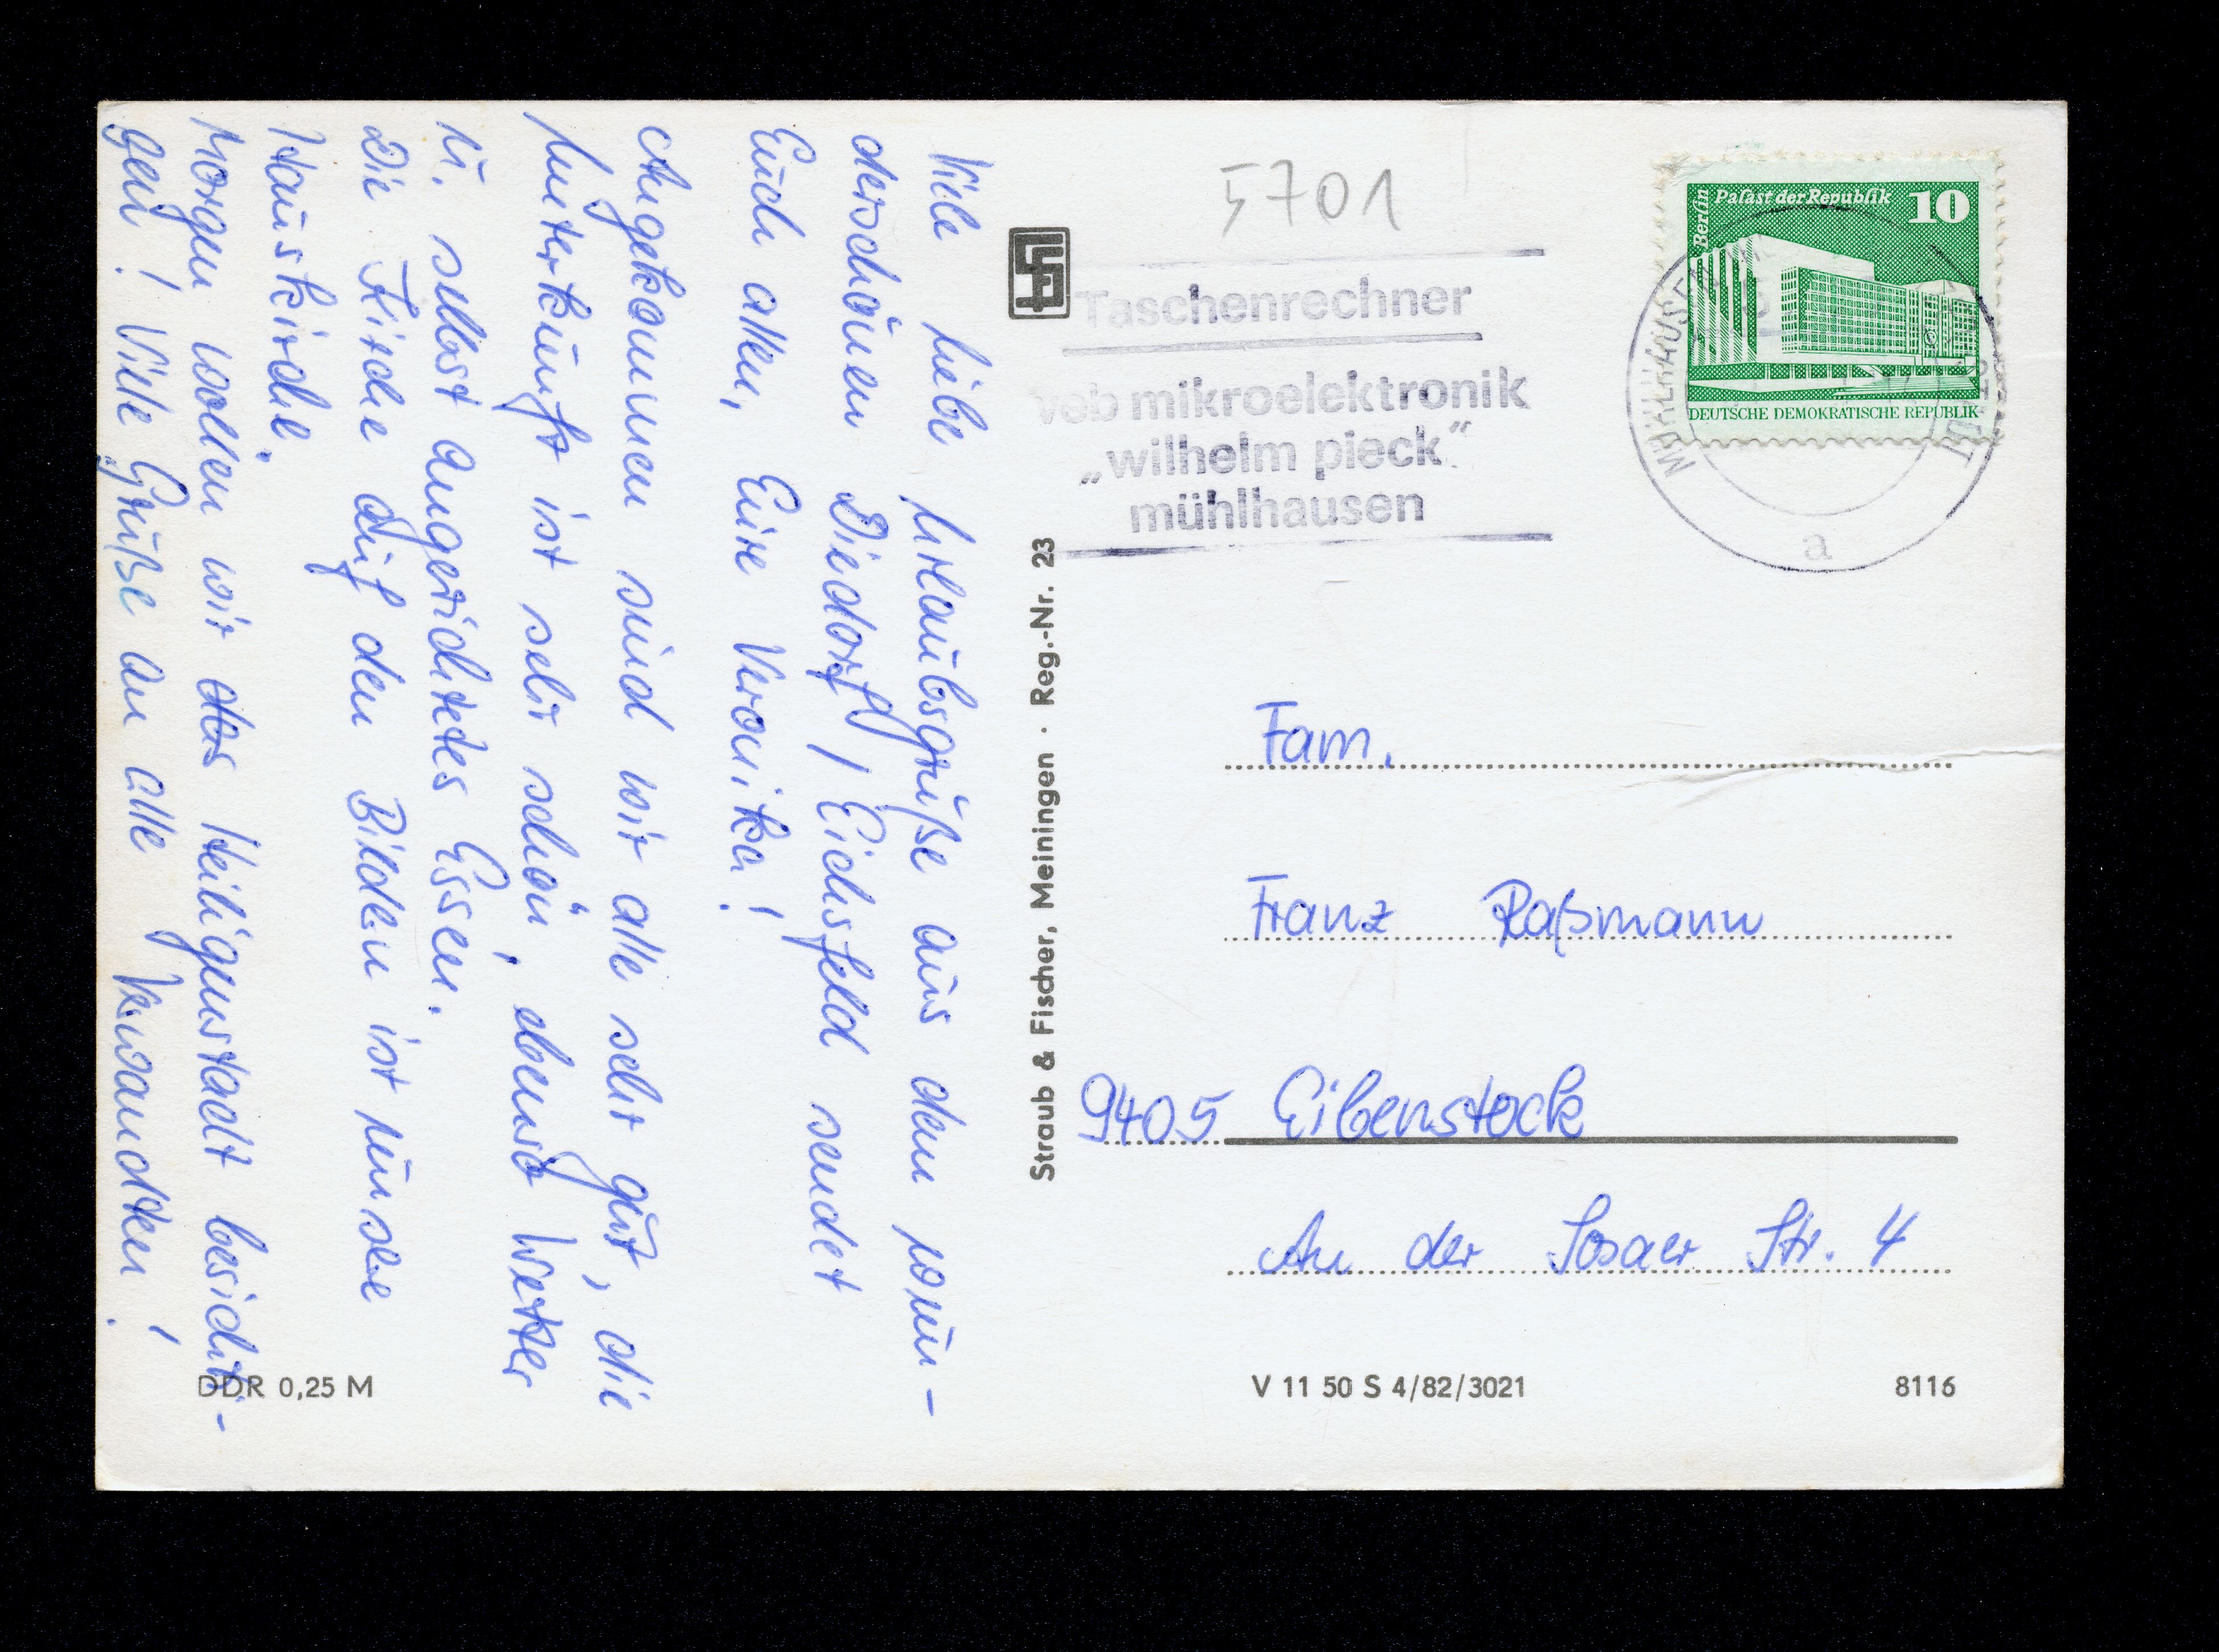 Viele liebe Urlaubsgrüße aus dem wun-
derschönen Diedorf / Eichsfeld sendet
Euch allen, Eure Veronika!
Angekommen sind wir alle sehr gut, die
Unterkunft ist sehr schön, ebenso Wetter
u. selbst angerichtetes Essen.
Die Kirche auf den Bildern ist unsere
Hauskirche.
Morgen wollen wir das Heiligenstadt besichti-
gen! Viele Grüße an alle Verwandten!
Straub & Fischer, Meiningen · Reg.-Nr. 23
DDR 0,25 M
5701
Taschenrechner
veb mikroelektronik
„wilhelm pieck“
mühlhausen
Berlin
Palast der Republik 10
DEUTSCHE DEMOKRATISCHE REPUBLIK
MÜHLHAUSEN
a
Fam.
Franz Raßmann
9405 Eibenstock
An der Sosaer Str. 4
V 11 50 S 4/82/3021
8116